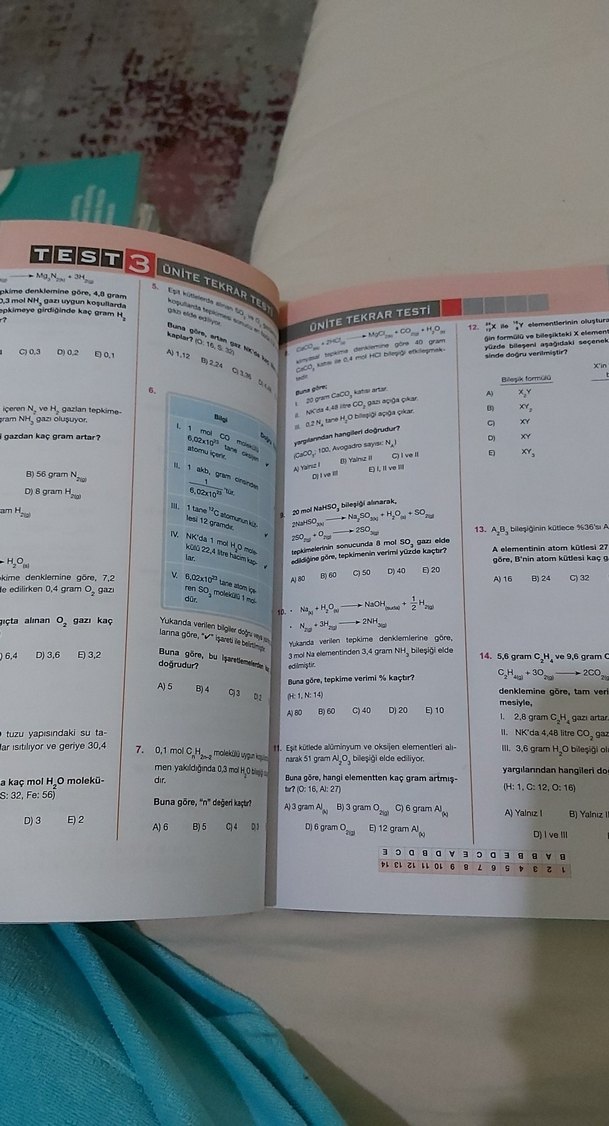 TEST 3 ÜNİTE TEKRAR TESTİ
Mg3N2(k) + 3H2(g)
pkime denklemine göre, 4,8 gram
0,3 mol NH3 gazı uygun koşullarda
epkimeye girdiğinde kaç gram H2
C) 0,3 D) 0,2 E) 0,1
içeren N2 ve H2 gazları tepkime-
ram NH3 gazı oluşuyor.
gazdan kaç gram artar?
B) 56 gram N2(g)
D) 8 gram H2(g)
am H2(g)
H2O(s)
kime denklemine göre, 7,2
le edilirken 0,4 gram O2 gazı
gıçta alınan O2 gazı kaç
6,4 D) 3,6 E) 3,2
tuzu yapısındaki su ta-
lar ısıtılıyor ve geriye 30,4
a kaç mol H2O molekü-
S: 32, Fe: 56)
D) 3 E) 2
5. Eşit kütlelerde alınan SO2 ve O2
koşullarda tepkimesi sonucu en
gazı elde ediliyor.
Buna göre, artan gaz NK'da kaç
kaplar? (O: 16, S: 32)
A) 1,12 B) 2,24 C) 3,36 D) 4,48
6.
Bilgi
I. 1 mol CO molekülü
6,02x10²³ tane oksijen
atomu içerir.
II. 1 akb, gram cinsinden
1
6,02x10²³ 'tür.
III. 1 tane ¹²C atomunun küt-
lesi 12 gramdır.
IV. NK'da 1 mol H2O mole-
külü 22,4 litre hacim kap-
lar.
V. 6,02x10²³ tane atom içe-
ren SO3 molekülü 1 mol-
dür.
Yukarıda verilen bilgiler doğru veya
larına göre, "✓" işareti ile belirtilmiştir.
Buna göre, bu işaretlemelerden
doğrudur?
A) 5 B) 4 C) 3 D) 2
7. 0,1 mol CnH2n-2 molekülü uygun koşullarda
men yakıldığında 0,3 mol H2O bileşiği
dır.
Buna göre, "n" değeri kaçtır?
A) 6 B) 5 C) 4 D) 3
ÜNİTE TEKRAR TESTİ
CaCO3(k) + 2HCl(s) MgCl2(k) + CO2(g) + H2O(s)
kimyasal tepkime denklemine göre 40 gram
CaCO3 katısı ile 0,4 mol HCl bileşiği etkileşmek-
tedir.
Buna göre;
I. 20 gram CaCO3 katısı artar.
II. NK'da 4,48 litre CO2 gazı açığa çıkar.
III. 0,2 NA tane H2O bileşiği açığa çıkar.
yargılarından hangileri doğrudur?
(CaCO3: 100, Avogadro sayısı: NA)
A) Yalnız I B) Yalnız II C) I ve II
D) I ve III E) I, II ve III
9. 20 mol NaHSO3 bileşiği alınarak,
2NaHSO3(k) Na2SO3(k) + H2O(s) + SO2(g)
2SO2(g) + O2(g) 2SO3(g)
tepkimelerinin sonucunda 8 mol SO3 gazı elde
edildiğine göre, tepkimenin verimi yüzde kaçtır?
A) 80 B) 60 C) 50 D) 40 E) 20
10. • Na(k) + H2O(s) NaOH(suda) + 1/2 H2(g)
• N2(g) + 3H2(g) 2NH3(g)
Yukarıda verilen tepkime denklemlerine göre,
3 mol Na elementinden 3,4 gram NH3 bileşiği elde
edilmiştir.
Buna göre, tepkime verimi % kaçtır?
(H: 1, N: 14)
A) 80 B) 60 C) 40 D) 20 E) 10
11. Eşit kütlede alüminyum ve oksijen elementleri alı-
narak 51 gram Al2O3 bileşiği elde ediliyor.
Buna göre, hangi elementten kaç gram artmış-
tır? (O: 16, Al: 27)
A) 3 gram Al(k) B) 3 gram O2(g) C) 6 gram Al(k)
D) 6 gram O2(g) E) 12 gram Al(k)
12. X ile Y elementlerinin oluştura
ğin formülü ve bileşikteki X element
yüzde bileşeni aşağıdaki seçenek
sinde doğru verilmiştir?
Bileşik formülü X'in
A) X2Y
B) XY2
C) XY
D) XY
E) XY3
13. A2B3 bileşiğinin kütlece %36'sı A
A elementinin atom kütlesi 27
göre, B'nin atom kütlesi kaç g
A) 16 B) 24 C) 32
14. 5,6 gram C2H4 ve 9,6 gram O
C2H4(g) + 3O2(g) 2CO2(g)
denklemine göre, tam veri
mesiyle,
I. 2,8 gram C2H4 gazı artar.
II. NK'da 4,48 litre CO2 gaz
III. 3,6 gram H2O bileşiği ol
yargılarından hangileri do
(H: 1, C: 12, O: 16)
A) Yalnız I B) Yalnız II
D) I ve III
1 2 3 4 5 6 7 8 9 10 11 12 13 14
B A B B E D C E A D B D C E